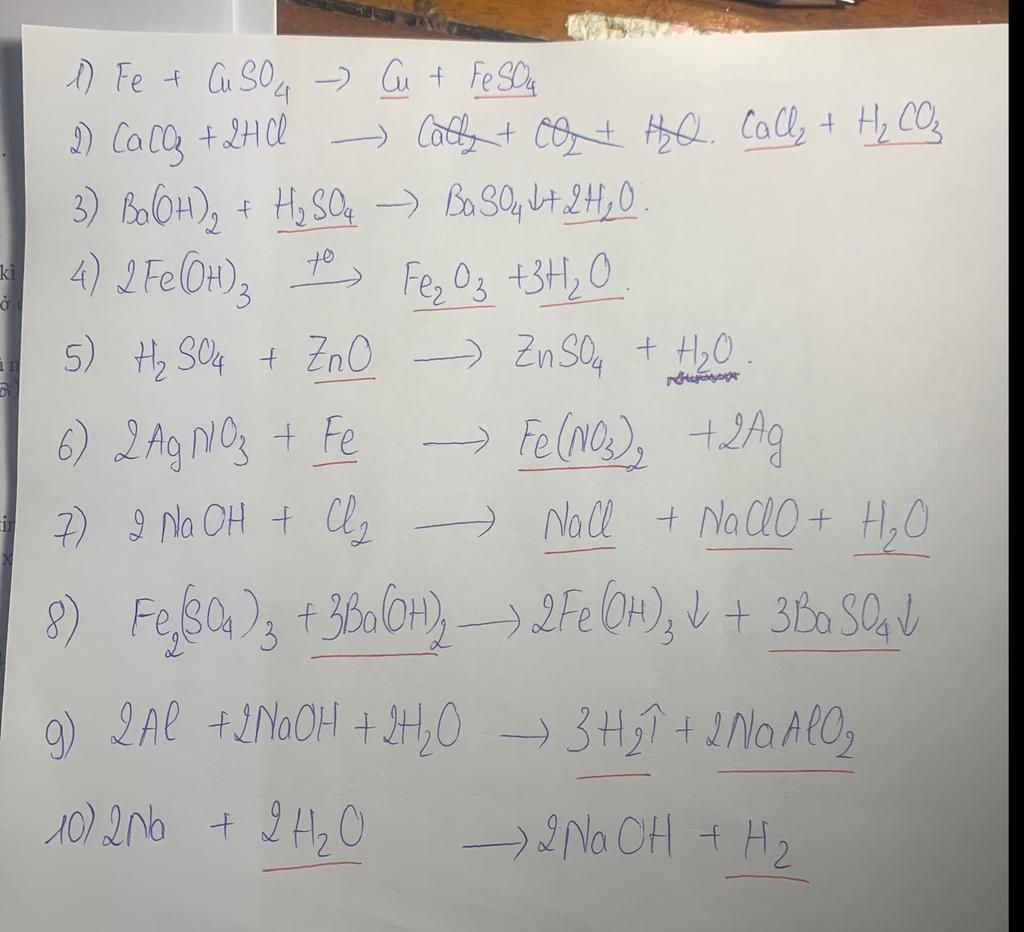 1) Fe + CuSO₄ → Cu + FeSO₄
2) CaCO₃ + 2HCl → ~~CaCl₂ + CO₂ + H₂O.~~ CaCl₂ + H₂CO₃
3) Ba(OH)₂ + H₂SO₄ → BaSO₄↓ + 2H₂O.
4) 2Fe(OH)₃ →(t⁰) Fe₂O₃ + 3H₂O.
5) H₂SO₄ + ZnO → ZnSO₄ + H₂O.
6) 2AgNO₃ + Fe → Fe(NO₃)₂ + 2Ag
7) 2NaOH + Cl₂ → NaCl + NaClO + H₂O
8) Fe₂(SO₄)₃ + 3Ba(OH)₂ → 2Fe(OH)₃↓ + 3BaSO₄↓
9) 2Al + 2NaOH + 2H₂O → 3H₂↑ + 2NaAlO₂
10) 2Na + 2H₂O → 2NaOH + H₂